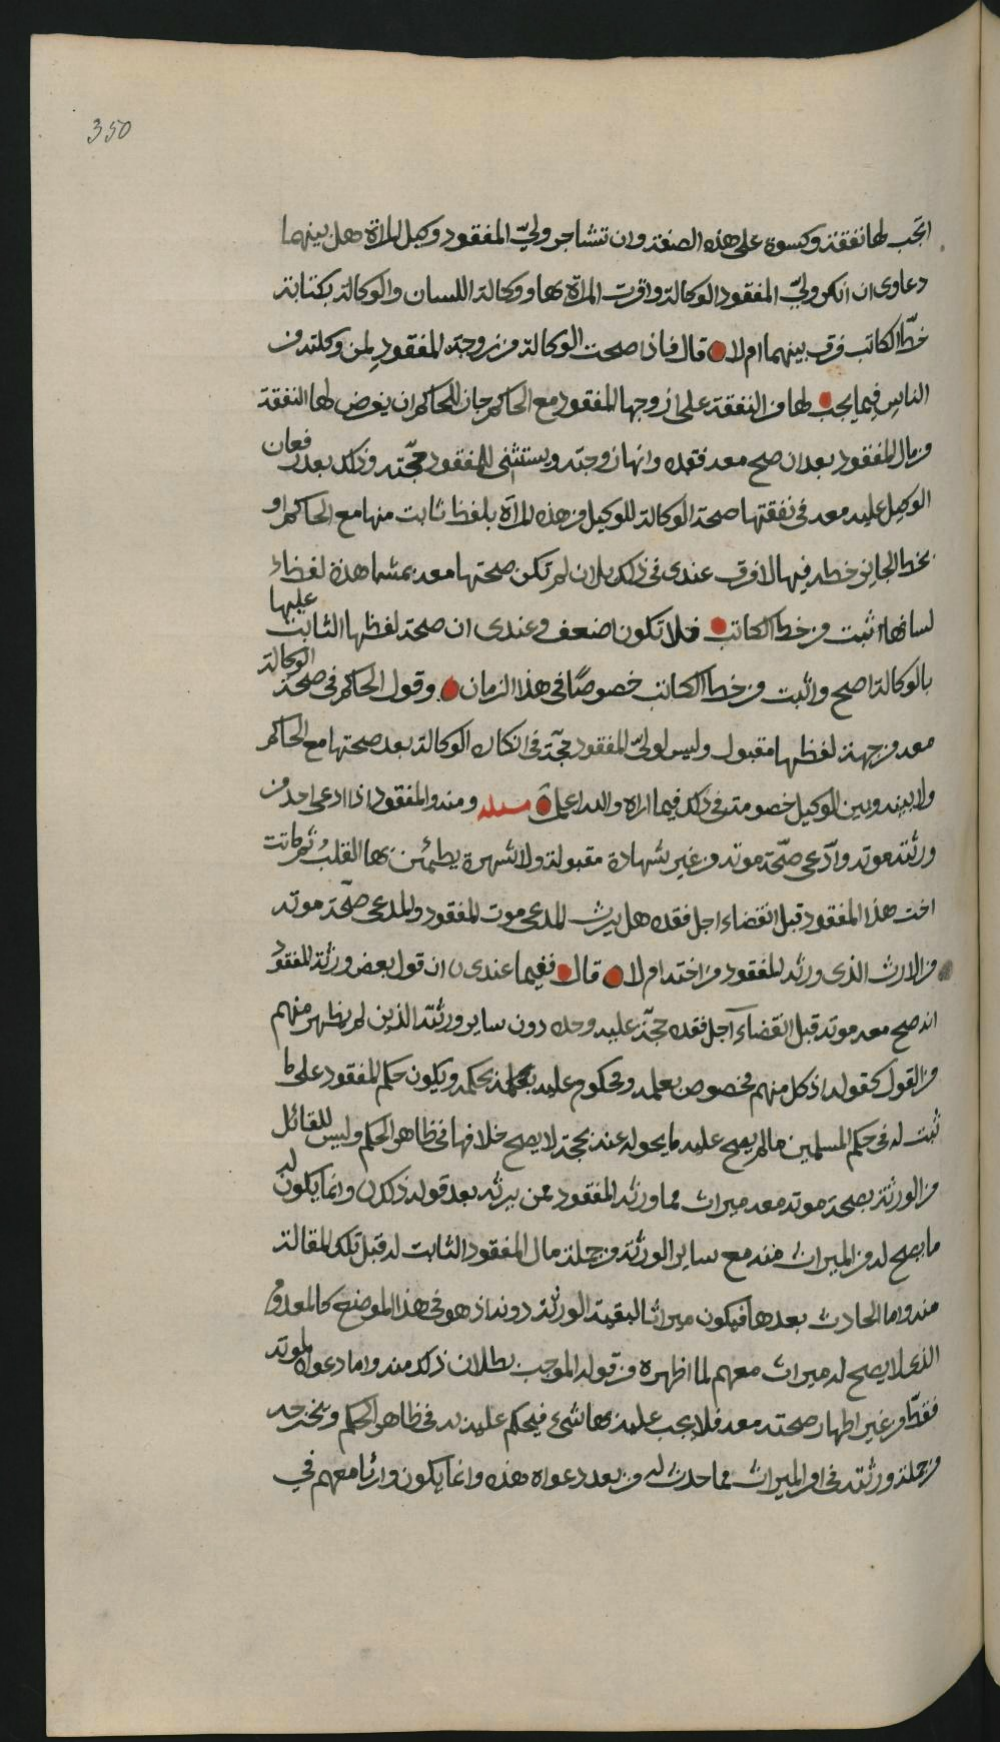 350
اتجب لها نفقة وكسوة على هذه الصفة وان تشاجر وليّ المفقود وكيل المراة هل بينهما
دعاوى ان انكر وليّ المفقود الوكالة واقرت المراة بها ووكالة اللسان والوكالة بكتابة
خطّ الكاتب فرق بينهما ام لا قال فاذا صحت الوكالة من زوجة المفقود لمن وكلته من
الناس فيما يجب لها من النفقة على زوجها المفقود مع الحاكم جاز للحاكم ان يفرض لها النفقة
من مال المفقود بعد ان صح معه فقده وانها زوجته ويستثنى للمفقود حجّته وذلك بعد رفعان
الوكيل عليه معه في نفقتها صحة الوكالة للوكيل من هذه المراة بلفظ ثابت منها مع الحاكم او
بخط الجايز خطه فيها لا فرق عندى في ذلك بل ان لم تكن صحتها معه بمشاهدة لفظا
لسانها اثبت من خط الكاتب فلا تكون اضعف وعندى ان صحة لفظها الثابت عليها
بالوكالة اصح واثبت من خط الكاتب خصوصًا في هذا الزمان وقول الحاكم في صحة الوكالة
معه من جهة لفظها مقبول وليس لوليّ المفقود حجّة في انكار الوكالة بعد صحتها مع الحاكم
ولا بينه وبين الوكيل خصومة في ذلك فيما اراه والله اعلم مسئله ومنه والمفقود اذا ادعى احد من
ورثته موته وادّعى صحّة موته من غير شهادة مقبولة ولا شهرة يطمئن بها القلب وثم ماتت
اخت هذا المفقود قبل انقضاء اجل فقده هل يرث المدعى موت المفقود والمدعى صحّة موته
من الارث الذى ورثه المفقود من اخته ام لا قال ففيما عندى ان قول بعض ورثة المفقود
انه صح معه موته قبل انقضاء اجل فقده حجّة عليه وحده دون ساير ورثته الذين لم يظهر منهم
من القول كقوله اذ كل منهم مخصوص بعلمه ومحكوم عليه بحكمه ويكون حكم المفقود على ما
ثبت له في حكم المسلمين ما لم يصح عليه ما يحوله عنه بحجة لا يصح خلافها في ظاهر الحكم وليس للقائل
من الورثة بصحة موته معه ميراث مما ورثه المفقود ممن يرثه بعد قوله ذلك وانما يكون له
ما يصح له من الميراث منه مع ساير الورثة من جملة مال المفقود الثابت له قبل تلك المقالة
منه واما الحادث بعدها فيكون ميراثا لبقية الورثة دونه اذ هو في هذا الموضع كالمعدوم
الذى لا يصح له ميراث معهم لما اظهره من قوله الموجب بطلان ذلك منه واما دعواه لموته
فقط من غير اظهار صحته معه فلا يجب عليه بها شئ فيحكم عليه به في ظاهر الحكم ويخرجه
من جملة ورثته في امر الميراث مما حدث له من بعد دعواه هذه وانما يكون وارثا معهم في